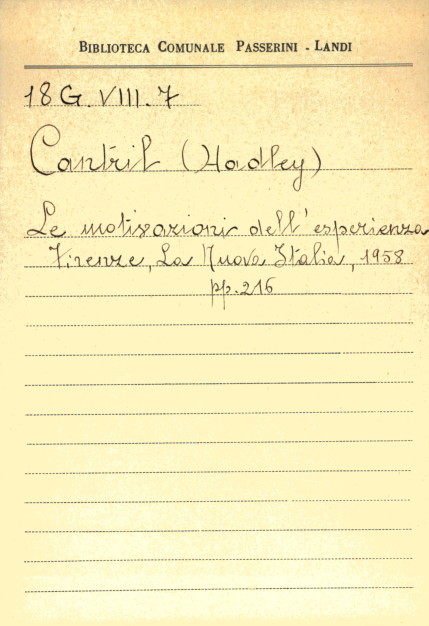 BIBLIOTECA COMUNALE PASSERINI - LANDI
18 G. VIII. 7
Cantril (Hadley)
Le motivazioni dell'esperienza
Firenze, La Nuova Italia, 1958
pp. 216